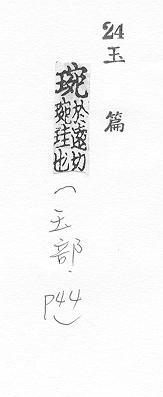 24
玉篇
琬於遠切琬珪也
(玉部·P44)